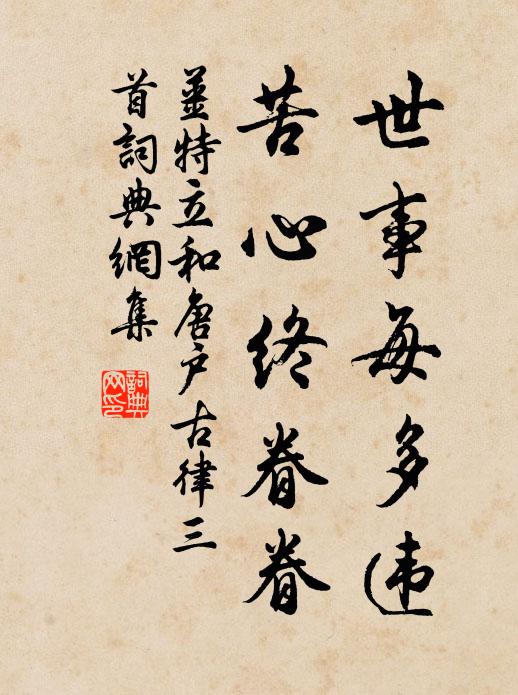 世事每多违
苦心終眷眷
薑特立和唐户古律三
首詞典網集
詞典
网印